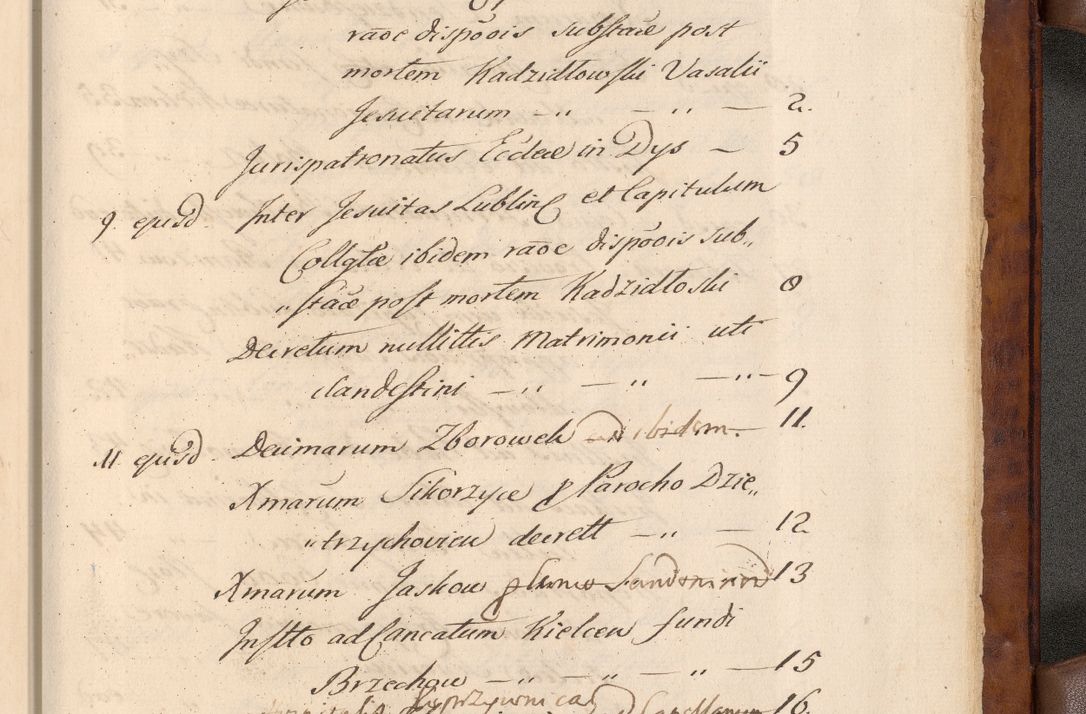 raõe dispõois substãe post
mortem Kadzidłowski Vasalii
Jesuitarum -„ - „ - 2.
Jurispatronatus Eccleæ in Dys - 5
9. ejusd. Inter Jesuitas Lublin et Capitulum
Collgtæ ibidem raõe dispõois sub„
„stãe post mortem Kadzidłoski 8
Decretum nullittis Matrimonii uti
clandestini -„ - „ -„- 9
11 ejusd. Decimarum Zborowek ibidem. 11.
Xmarum Sikorzyce p Parocho Dzie„
„trzychovicen decrett -„ - 12
Xmarum Jaskow 13
Instto ad Cancatum Kielcen fundi
Brzechow -„ - „ - „ - 15
16.